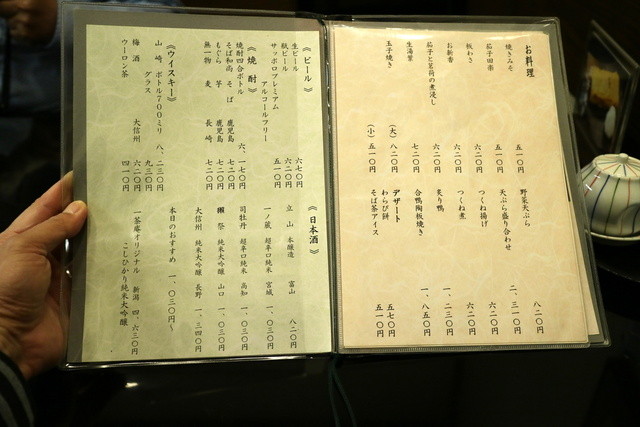 お料理
焼きみそ 五一〇円
茄子田楽 五一〇円
板わさ 六二〇円
お新香 六二〇円
茄子と茗荷の煮浸し 六二〇円
生湯葉 七二〇円
玉子焼き (大) 八二〇円
(小) 五一〇円
野菜天ぷら 八二〇円
天ぷら盛り合わせ 二、三一〇円
つくね揚げ 六二〇円
つくね煮 六二〇円
炙り鴨 一、二三〇円
合鴨陶板焼き 一、八五〇円
デザート
わらび餅 五七〇円
そば茶アイス 五一〇円
《ビール》
生ビール 六七〇円
瓶ビール 六二〇円
サッポロプレミアム
アルコールフリー 五一〇円
《焼酎》
焼酎四合ボトル 六、一七〇円
そば和尚 そば 鹿児島 七二〇円
もぐら 芋 鹿児島 七二〇円
無一物 麦 長崎 七二〇円
《ウイスキー》
山崎 ボトル700ミリ 八、二三〇円
グラス 九三〇円
梅酒 大信州 六二〇円
ウーロン茶 四一〇円
《日本酒》
立山 本醸造 富山 八二〇円
一ノ蔵 超辛口純米 宮城 一、〇三〇円
司牡丹 超辛口純米 高知 一、〇三〇円
獺祭 純米大吟醸 山口 一、〇三〇円
大信州 純米大吟醸 長野 一、三四〇円
本日のおすすめ 一、〇三〇円~
一茶庵オリジナル 新潟 四、六三〇円
こしひかり純米大吟醸